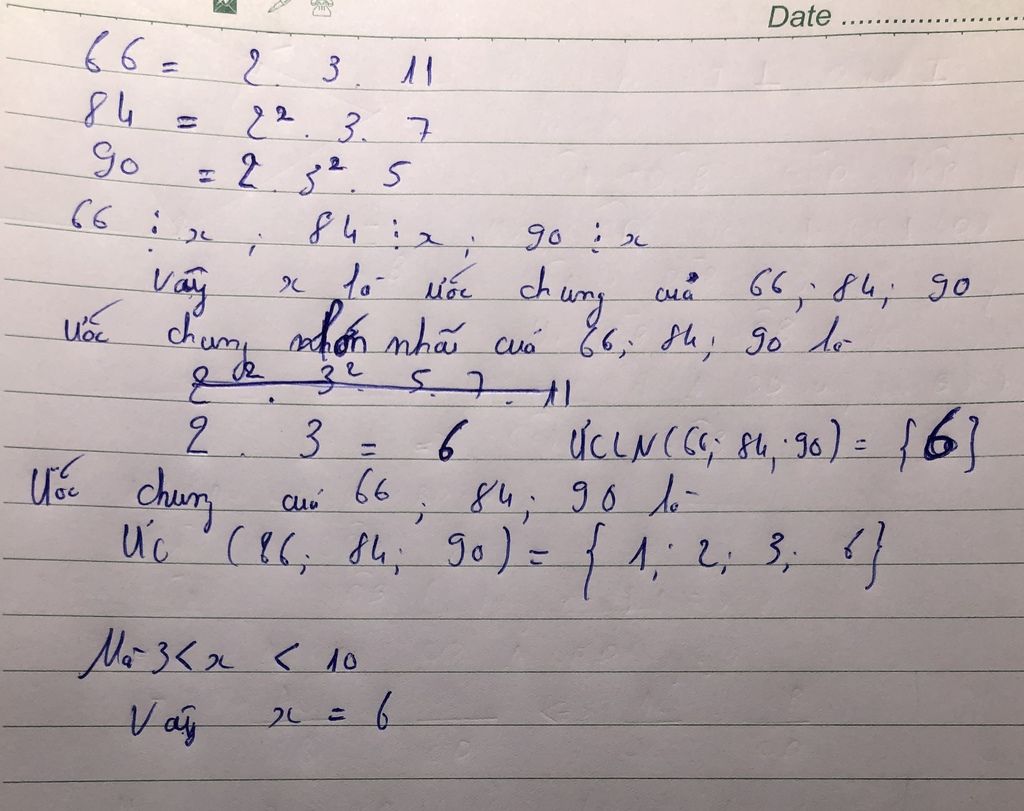 Date
66 = 2 . 3 . 11
84 = 2² . 3 . 7
90 = 2 . 3² . 5
66 ⋮ x ; 84 ⋮ x ; 90 ⋮ x
Vậy x là ước chung của 66 ; 84 ; 90
Ước chung lớn nhất của 66 ; 84 ; 90 là
2² . 3² . 5 . 7 . 11
2 . 3 = 6 ƯCLN(66; 84; 90) = {6}
Ước chung của 66 ; 84 ; 90 là
ƯC (86; 84; 90) = { 1; 2; 3; 6}
Mà 3 < x < 10
Vậy x = 6